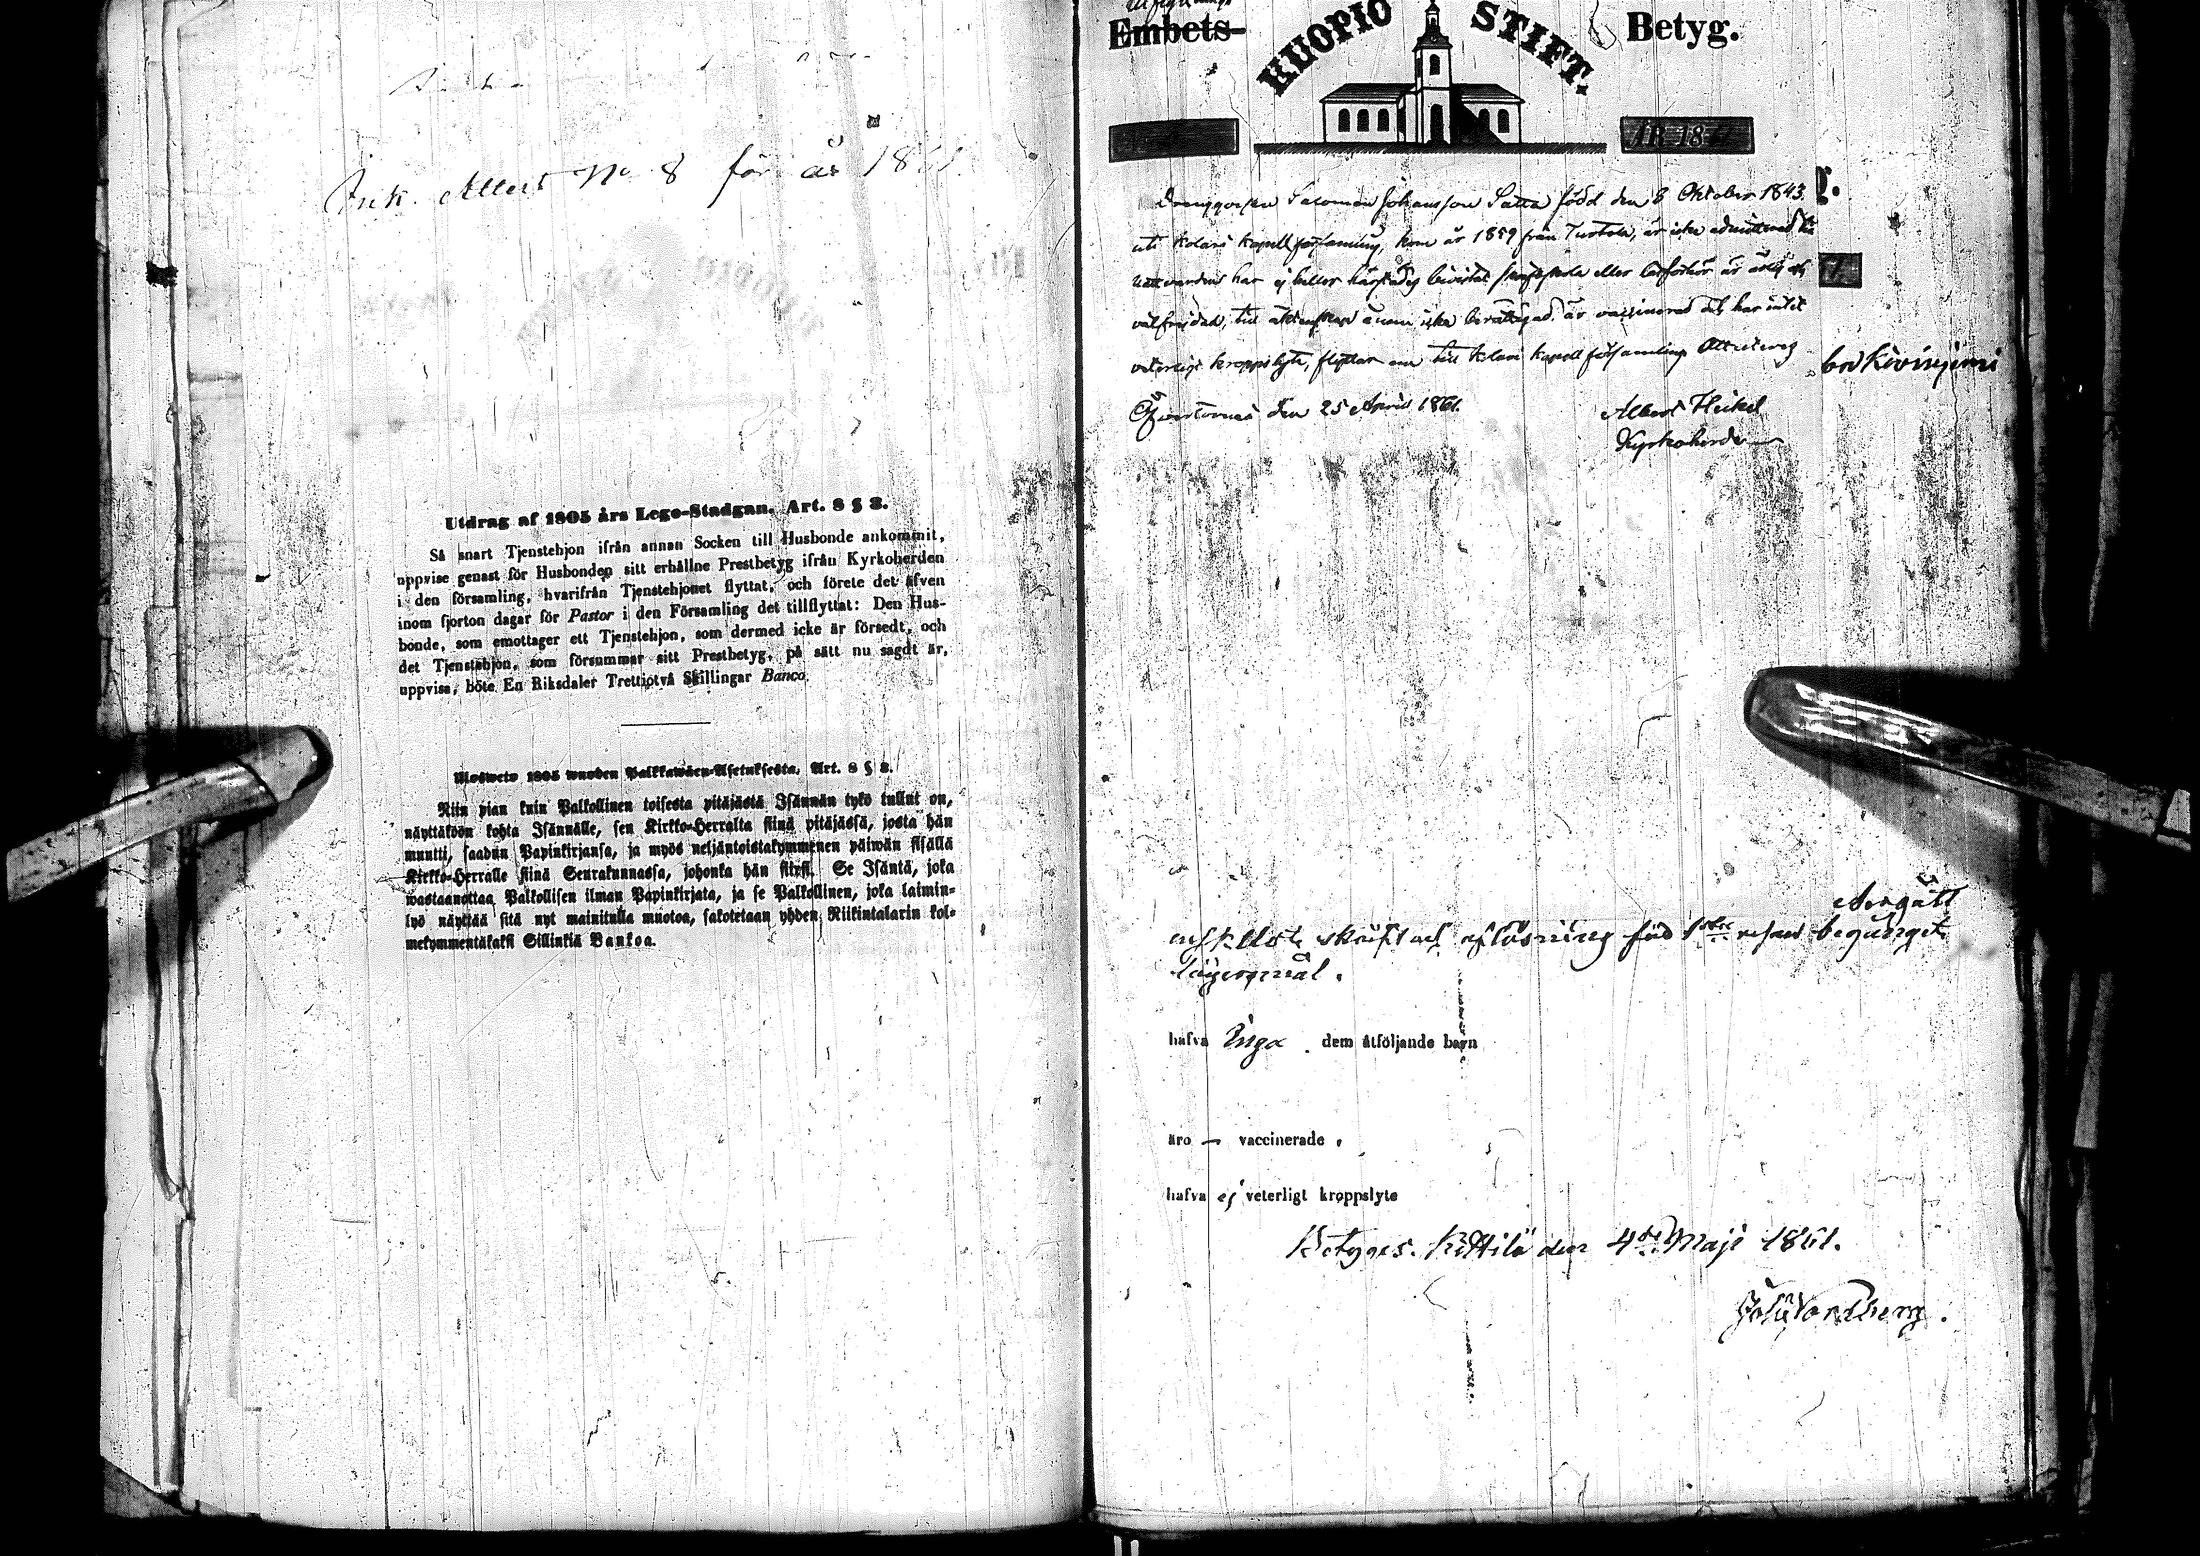 Ink. Attest No 8 för år 1861.
Utdrag af 1805 års Lego-Stadgan. Art. 8 § 3.
Så snart Tjenstehjon ifrån annan Socken till Husbonde ankommit,
uppvise genast för Husbonden sitt erhållne Prestbetyg ifrån Kyrkoherden
i den församling, hvarifrån Tjenstehjonet flyttat, och förete det äfven
inom fjorton dagar för Pastor i den Församling det tillflyttat: Den Hus-
bonde, som emottager ett Tjenstehjon, som dermed icke är försedt, och
det Tjenstehjon, som försummar sitt Prestbetyg, på sätt nu sagdt är,
uppvisa, böte En Riksdaler Trettiotvå Skillingar Banco.
Ulosweto 1805 wuoden Palkkawäen-Asetuksesta. Art. 8 § 3.
Niin pian kuin Palkollinen toisesta pitäjästä Isännän tykö tullut on,
näyttäköön kohta Isännälle, sen Kirkko-Herralta siinä pitäjässä, josta hän
muutti, saadun Papinkirjansa, ja myös neljäntoistakymmenen päiwän sisällä
Kirkko-Herralle siinä Seurakunnassa, johonka hän siirsi. Se Isäntä, joka
wastaanottaa Palkollisen ilman Papinkirjata, ja se Palkollinen, joka laimin-
lyö näyttää sitä nyt mainitulla muotoa, sakotetaan yhden Riikintalarin kol-
mekymmentäkaksi Sillinkiä Bankoa.
Embets-
KUOPIO STIFT.
Betyg.
ÅR 18
Salomon Johansson Satta född den 8 Oktober 1843
uti Kolari kapellförsamling, kom år 1859 från Turtola, är icke admitterad
nattvarden har ej heller härstädes bivistat eller läsförhör är
välfrejdad, till äktenskap ännu icke berättigad. är vaccinerad och har intet
veterligt kroppslyte, flyttar nu till Kolari kapellförsamling Attesteras
Öfvertorneå den 25 April 1861.
Albert Heikel
Kyrkoherde
Kivinjemi
skrift och aflösning för 1sta resan begånget
lägersmål.
hafva Inga dem åtföljande barn
äro — vaccinerade.
hafva ej veterligt kroppslyte
Betygas. Kittilä den 4de Maji 1861.